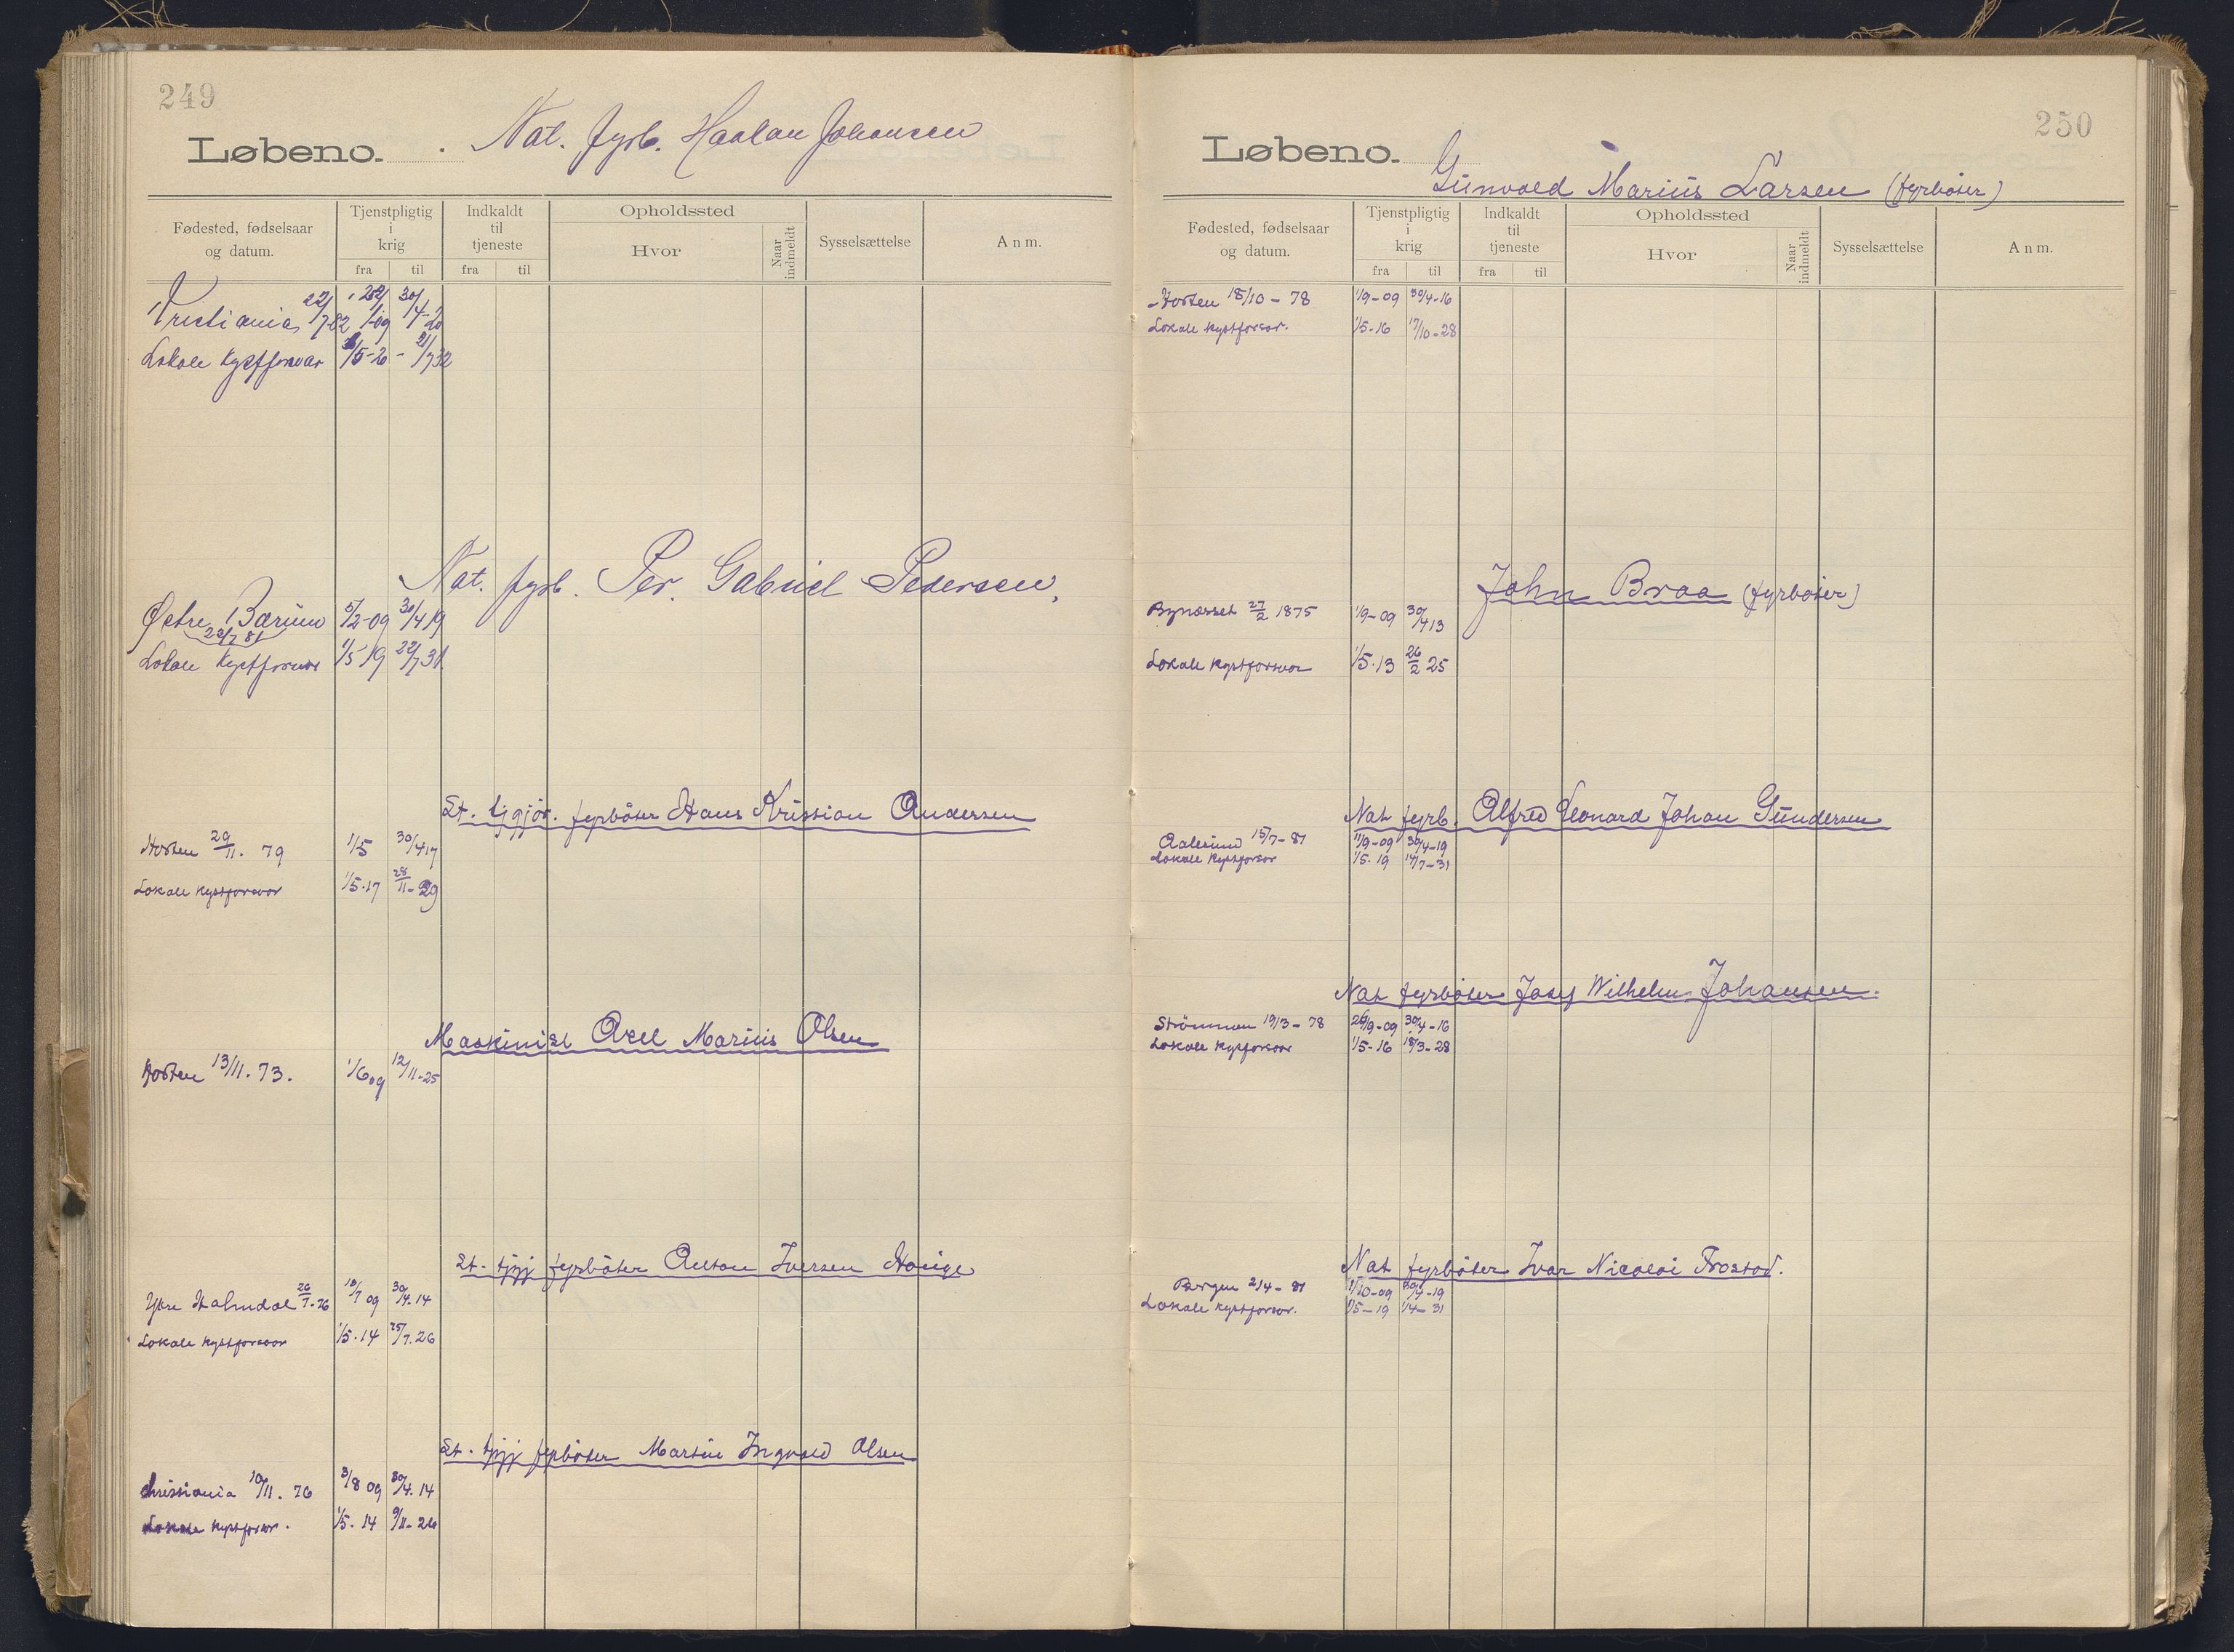 249
Løbeno. Nat. fyrb. Haakan Johansen
Fødested, fødselsaar og datum.
Tjenstpligtig i krig
fra til
Indkaldt til tjeneste
fra til
Opholdssted
Hvor
Naar indmeldt
Sysselsættelse
Anm.
Kristiania 22/7 82 1/1-09 30/4-20
Lokale Kystforsvar 1/5-20 - 21/7 32
Nat. fyrb. Per. Gabriel Pedersen.
Østre Bærum 5/2-09 30/4 19
23/7 81
Lokale Kystforsvar 1/5 19 22/7 31
St. tjgjør. fyrbøter Hans Kristian Andersen
Horten 29/11. 79 1/5 30/4 17
Lokale Kystforsvar 1/5.17 28/11-29
Maskinist Axel Marius Olsen
Horten 13/11. 73. 1/6 09 12/11-25
St. tjgj fyrbøter Anton Iversen
Ytre Holmdal 26/7.76 13/7 09 30/4.14
Lokale Kystforsvar 1/5.14 25/7.26
St. tjgj fyrbøter Martin Ingvald Olsen
Christiania 10/11. 76 3/8 09 30/4.14
Lokale Kystforsvar. 1/5.14 9/11-26
250
Løbeno.
Gunvald Marius Larsen (fyrbøter)
Fødested, fødselsaar og datum.
Tjenstpligtig i krig
fra til
Indkaldt til tjeneste
fra til
Opholdssted
Hvor
Naar indmeldt
Sysselsættelse
Anm.
Horten 18/10 - 78 1/9-09 30/4-16
Lokale Kystforsvar. 1/5-16 17/10-28
John Braa (fyrbøter)
Bynæsset 27/2 1875 1/9-09 30/4 13
Lokale Kystforsvar 1/5.13 26/2 25
Nat fyrb. Alfred Leonard Johan Gundersen
Aalesund 15/7-81 11/9-09 30/4-19
Lokale Kystforsvar 1/5.19 14/7-31
Nat fyrbøter Josef Wilhelm Johansen.
Strømmen 19/3-78 26/9-09 30/4-16
Lokale Kystforsvar 1/5-16 18/3-28
Nat fyrbøter Ivar Nicolai Frostad.
Bergen 2/4-81 1/10-09 30/4-19
Lokale Kystforsvar. 1/5-19 1/4-31